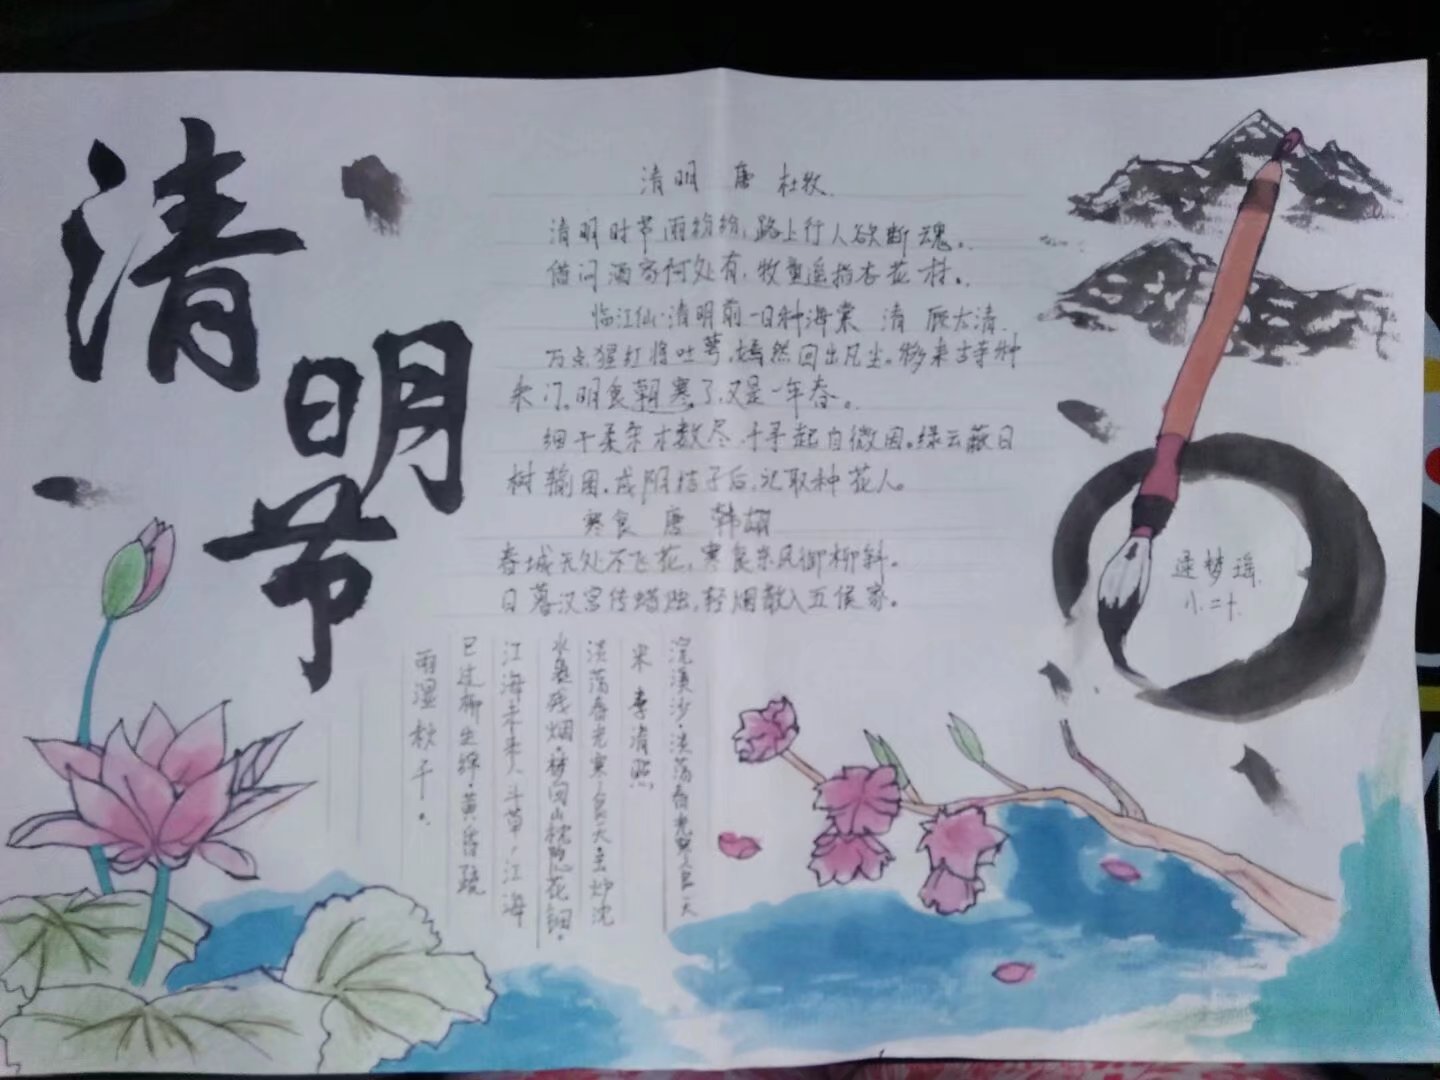 清明节
清明 唐 杜牧
清明时节雨纷纷，路上行人欲断魂。
借问酒家何处有，牧童遥指杏花村。
临江仙·清明前一日种海棠 清 顾太清
万点猩红将吐萼，嫣然回出凡尘。移来古寺种
朱门，明食朝寒了，又是一年春。
细干柔条才数尽，千寻起自微因。绿云蔽日
树输囷，成阴结子后，记取种花人。
寒食 唐 韩翃
春城无处不飞花，寒食东风御柳斜。
日暮汉宫传蜡烛，轻烟散入五侯家。
浣溪沙·淡荡春光寒食天
宋 李清照
淡荡春光寒食天，玉炉沈
水袅残烟，梦回山枕隐花钿。
江海未来人斗草，江海
已过柳生绵，黄昏疏
雨湿秋千。
梦瑶
小二十